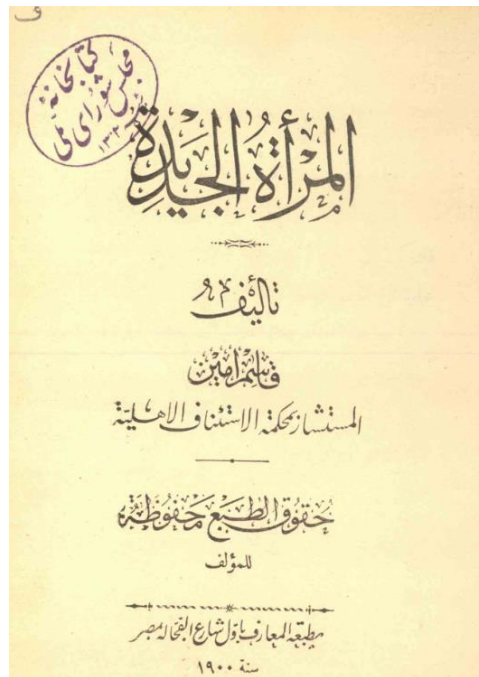 ف
كتابخانه
مجلس شورای ملی
المرأة الجديدة
تأليف
قاسم امين
المستشار بمحكمة الاستئناف الاهلية
حقوق الطبع محفوظة
للمؤلف
مطبعة المعارف باول شارع الفجالة بمصر
سنة ١٩٠٠